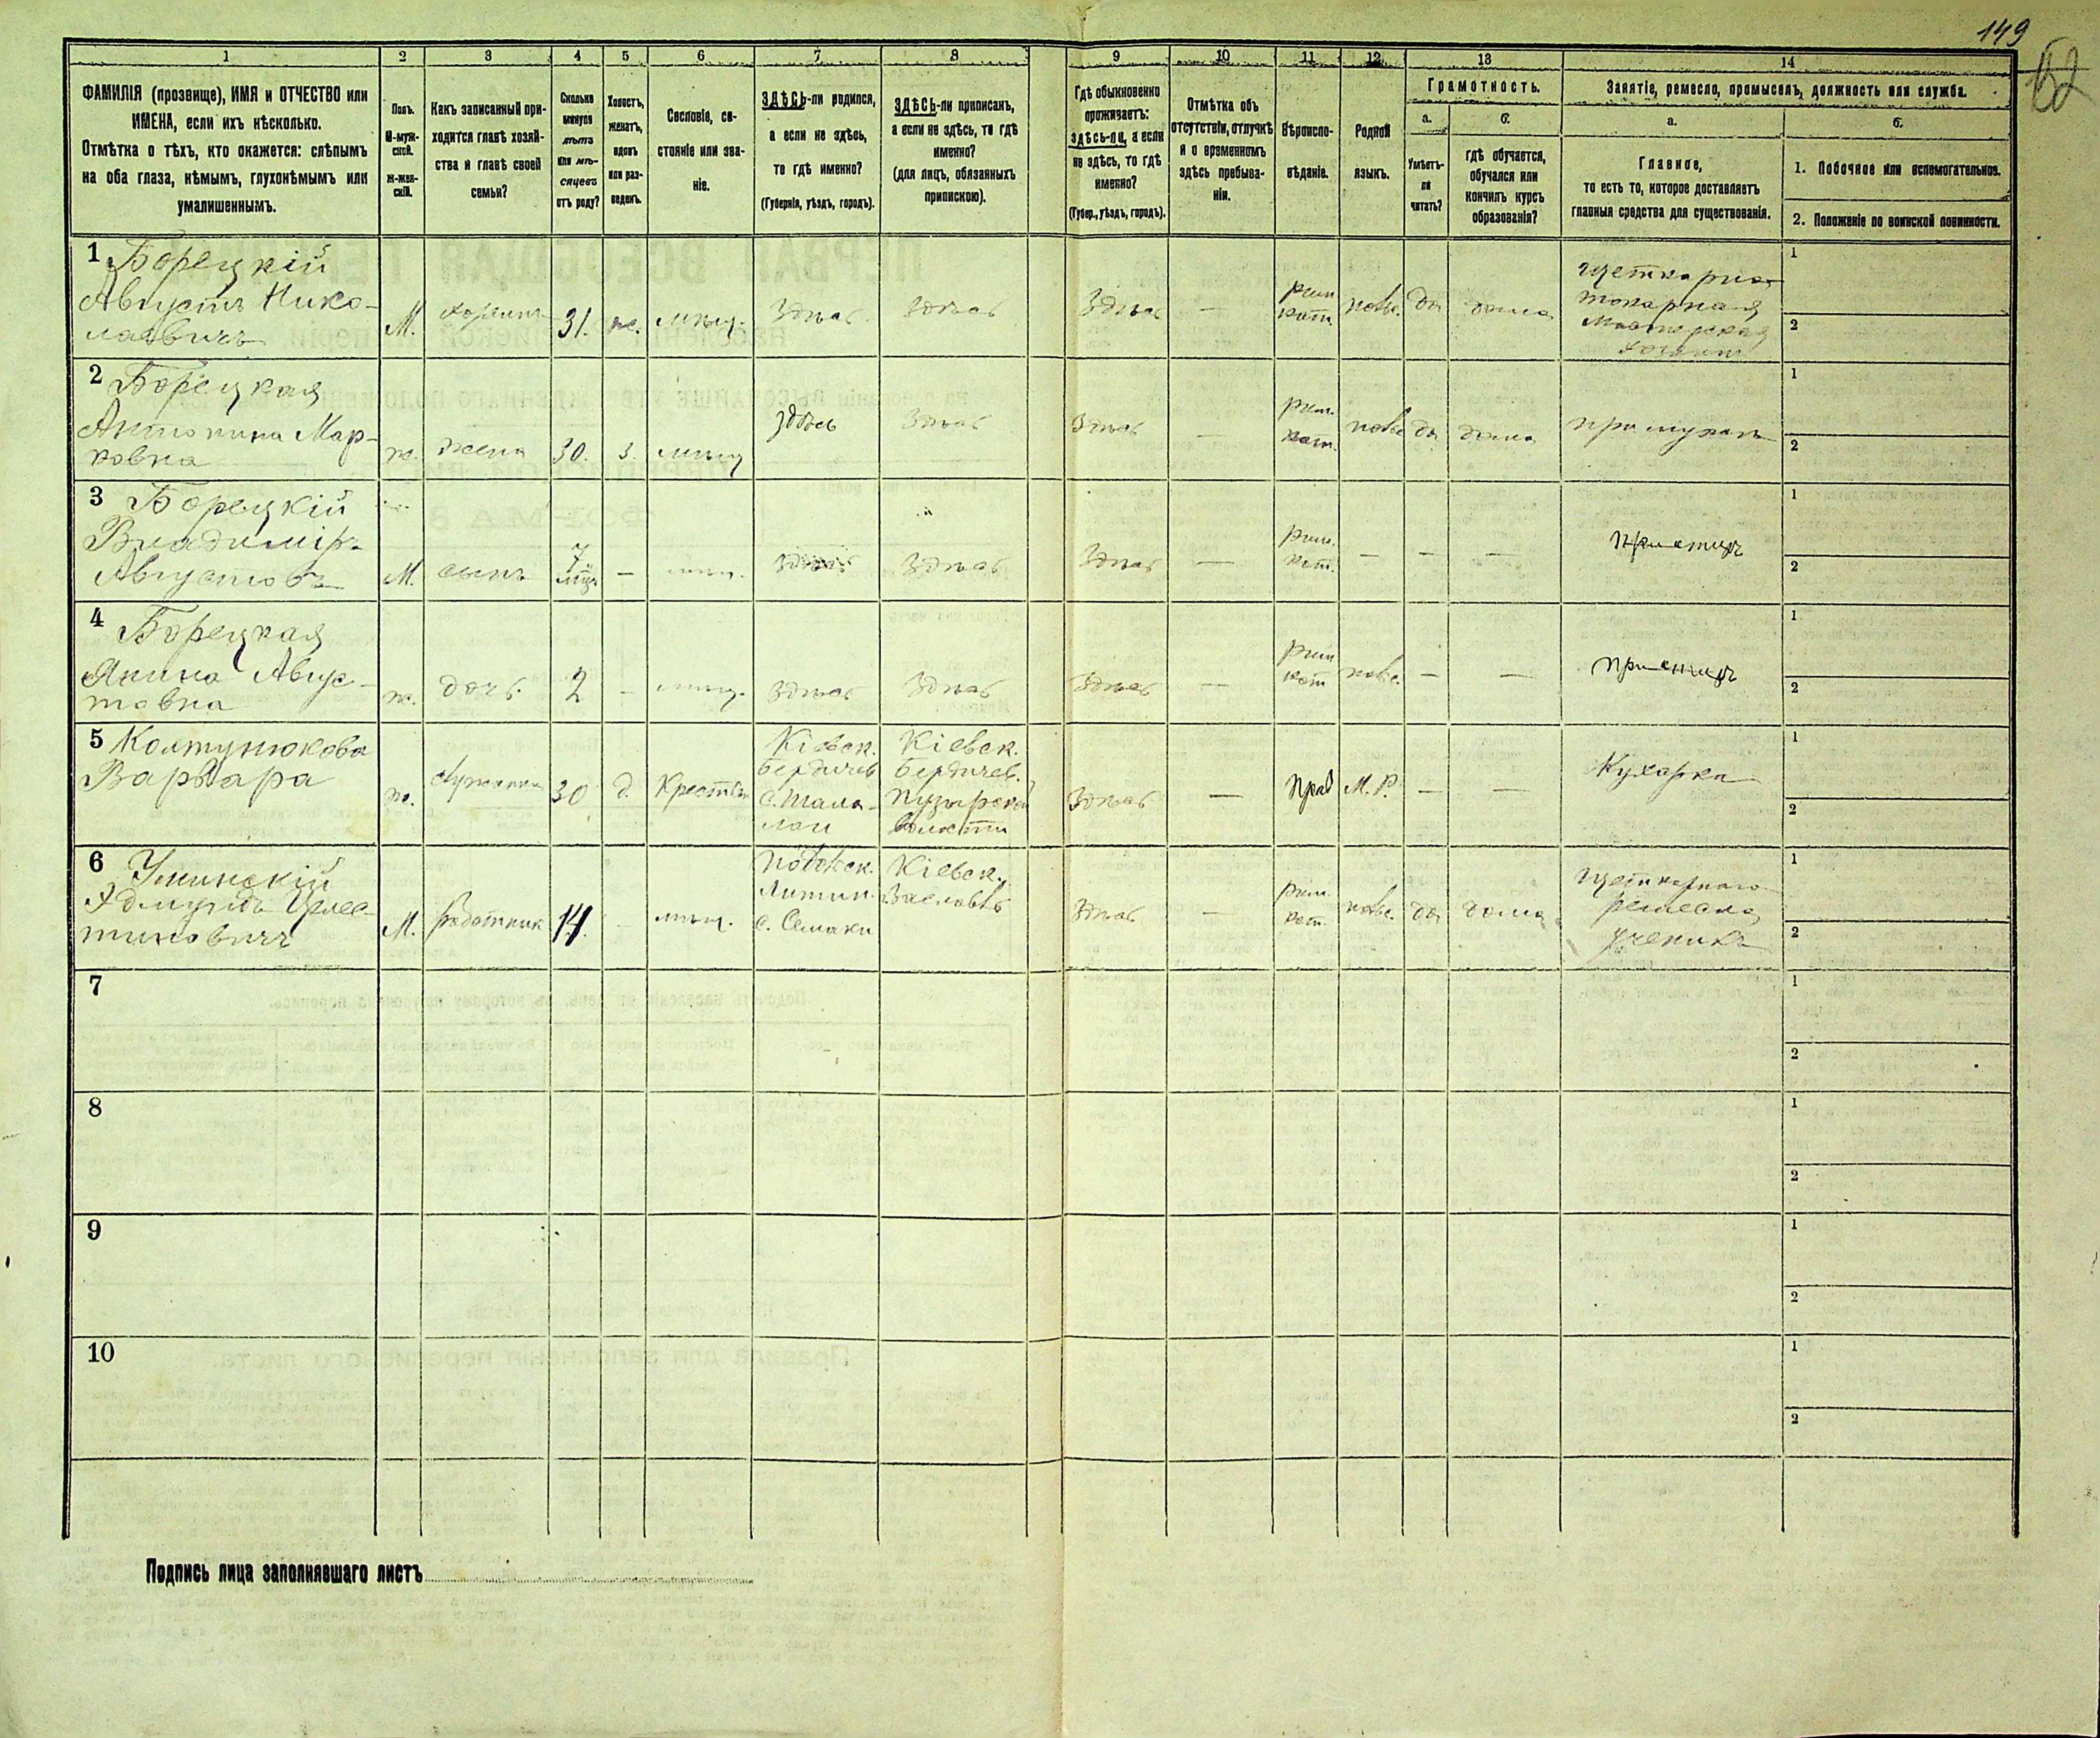 149
62
1
ФАМИЛІЯ (прозвище), ИМЯ и ОТЧЕСТВО или
ИМЕНА, если ихъ нѣсколько.
Отмѣтка о тѣхъ, кто окажется: слѣпымъ
на оба глаза, нѣмымъ, глухонѣмымъ или
умалишеннымъ.
2
Полъ.
М-муж-
ской.
ж-жен-
скій.
3
Какъ записанный при-
ходится главѣ хозяй-
ства и главѣ своей
семьи?
4
Сколько
минуло
лѣтъ
или мѣ-
сяцевъ
отъ роду?
5
Холостъ,
женатъ,
вдовъ
или раз-
веденъ.
6
Сословіе, со-
стояніе или зва-
ніе.
7
ЗДѢСЬ-ли родился,
а если не здѣсь,
то гдѣ именно?
(Губернія, уѣздъ, городъ).
8
ЗДѢСЬ-ли приписанъ,
а если не здѣсь, то гдѣ
именно?
(для лицъ, обязанныхъ
припискою).
9
Гдѣ обыкновенно
проживаетъ:
здѣсь-ли, а если
не здѣсь, то гдѣ
именно?
(Губер., уѣздъ, городъ).
10
Отмѣтка объ
отсутствіи, отлучкѣ
и о временномъ
здѣсь пребыва-
ніи.
11
Вѣроиспо-
вѣданіе.
12
Родной
языкъ.
13
Грамотность.
а.
Умѣетъ-
ли
читать?
б.
гдѣ обучается,
обучался или
кончилъ курсъ
образованія?
14
Занятіе, ремесло, промыселъ, должность или служба.
а.
Главное,
то есть то, которое доставляетъ
главныя средства для существованія.
б.
1. Побочное или вспомогательное.
2. Положеніе по воинской повинности.
1 Борецкій
Августъ Нико-
лаевичъ
М.
хозяинъ
31.
ж.
мѣщ.
Здѣсь
Здѣсь
Здѣсь
—
рим
кат.
польс.
да
дома
токарная
мастерская
хозяинъ
1
2
2 Борецкая
Антонина Мар-
ковна
ж.
жена
30.
з.
мѣщ
здѣсь
Здѣсь
Здѣсь
—
рим.
кат.
польс
да
дома
при мужѣ
1
2
3 Борецкій
Владиміръ
Августовъ
М.
сынъ
7
мѣц.
—
мѣщ.
здѣсь
Здѣсь
Здѣсь
—
рим.
кат.
—
—
—
при отцѣ
1
2
4 Борецкая
Янина Авгус-
товна
ж.
дочь.
2
—
мѣщ.
здѣсь
Здѣсь
Здѣсь
—
рим
кат
польс.
—
—
при отцѣ
1
2
5 Колтунюкова
Варвара
ж.
30
д.
Крестьян
Кіевск.
Бердичев
Кіевск.
Бердичев.
Пузырской
волости
Здѣсь
—
Прав
М. Р.
—
—
Кухарка
1
2
6 Уминскій
М.
работник
14.
мѣщ.
Подольск.
Литин.
с. Семаки
Кіевск.
Здѣсь
—
рим.
кат.
польс.
да
дома
щеткарнаго
ремесла
ученикъ
1
2
7
1
2
8
1
2
9
1
2
10
1
2
Подпись лица заполнявшаго листъ